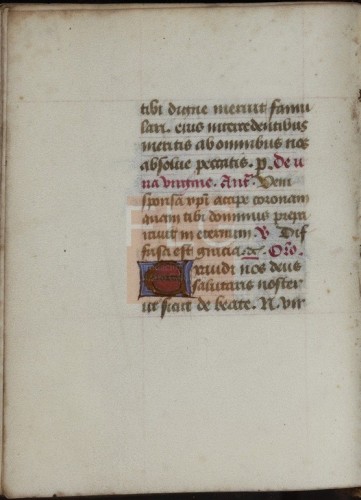 tibi digne meruit famu
lari. eius intercedentibus
meritis ab omnibus nos
absolue peccatis. p. De u
na virgine. Ant. Veni
sponsa xpi accipe coronam
quam tibi dominus prepa
rauit in eternum V Dif
fusa est gracia &c. Oro.
Exaudi nos deus
salutaris noster
ut sicut de beate. N. vir